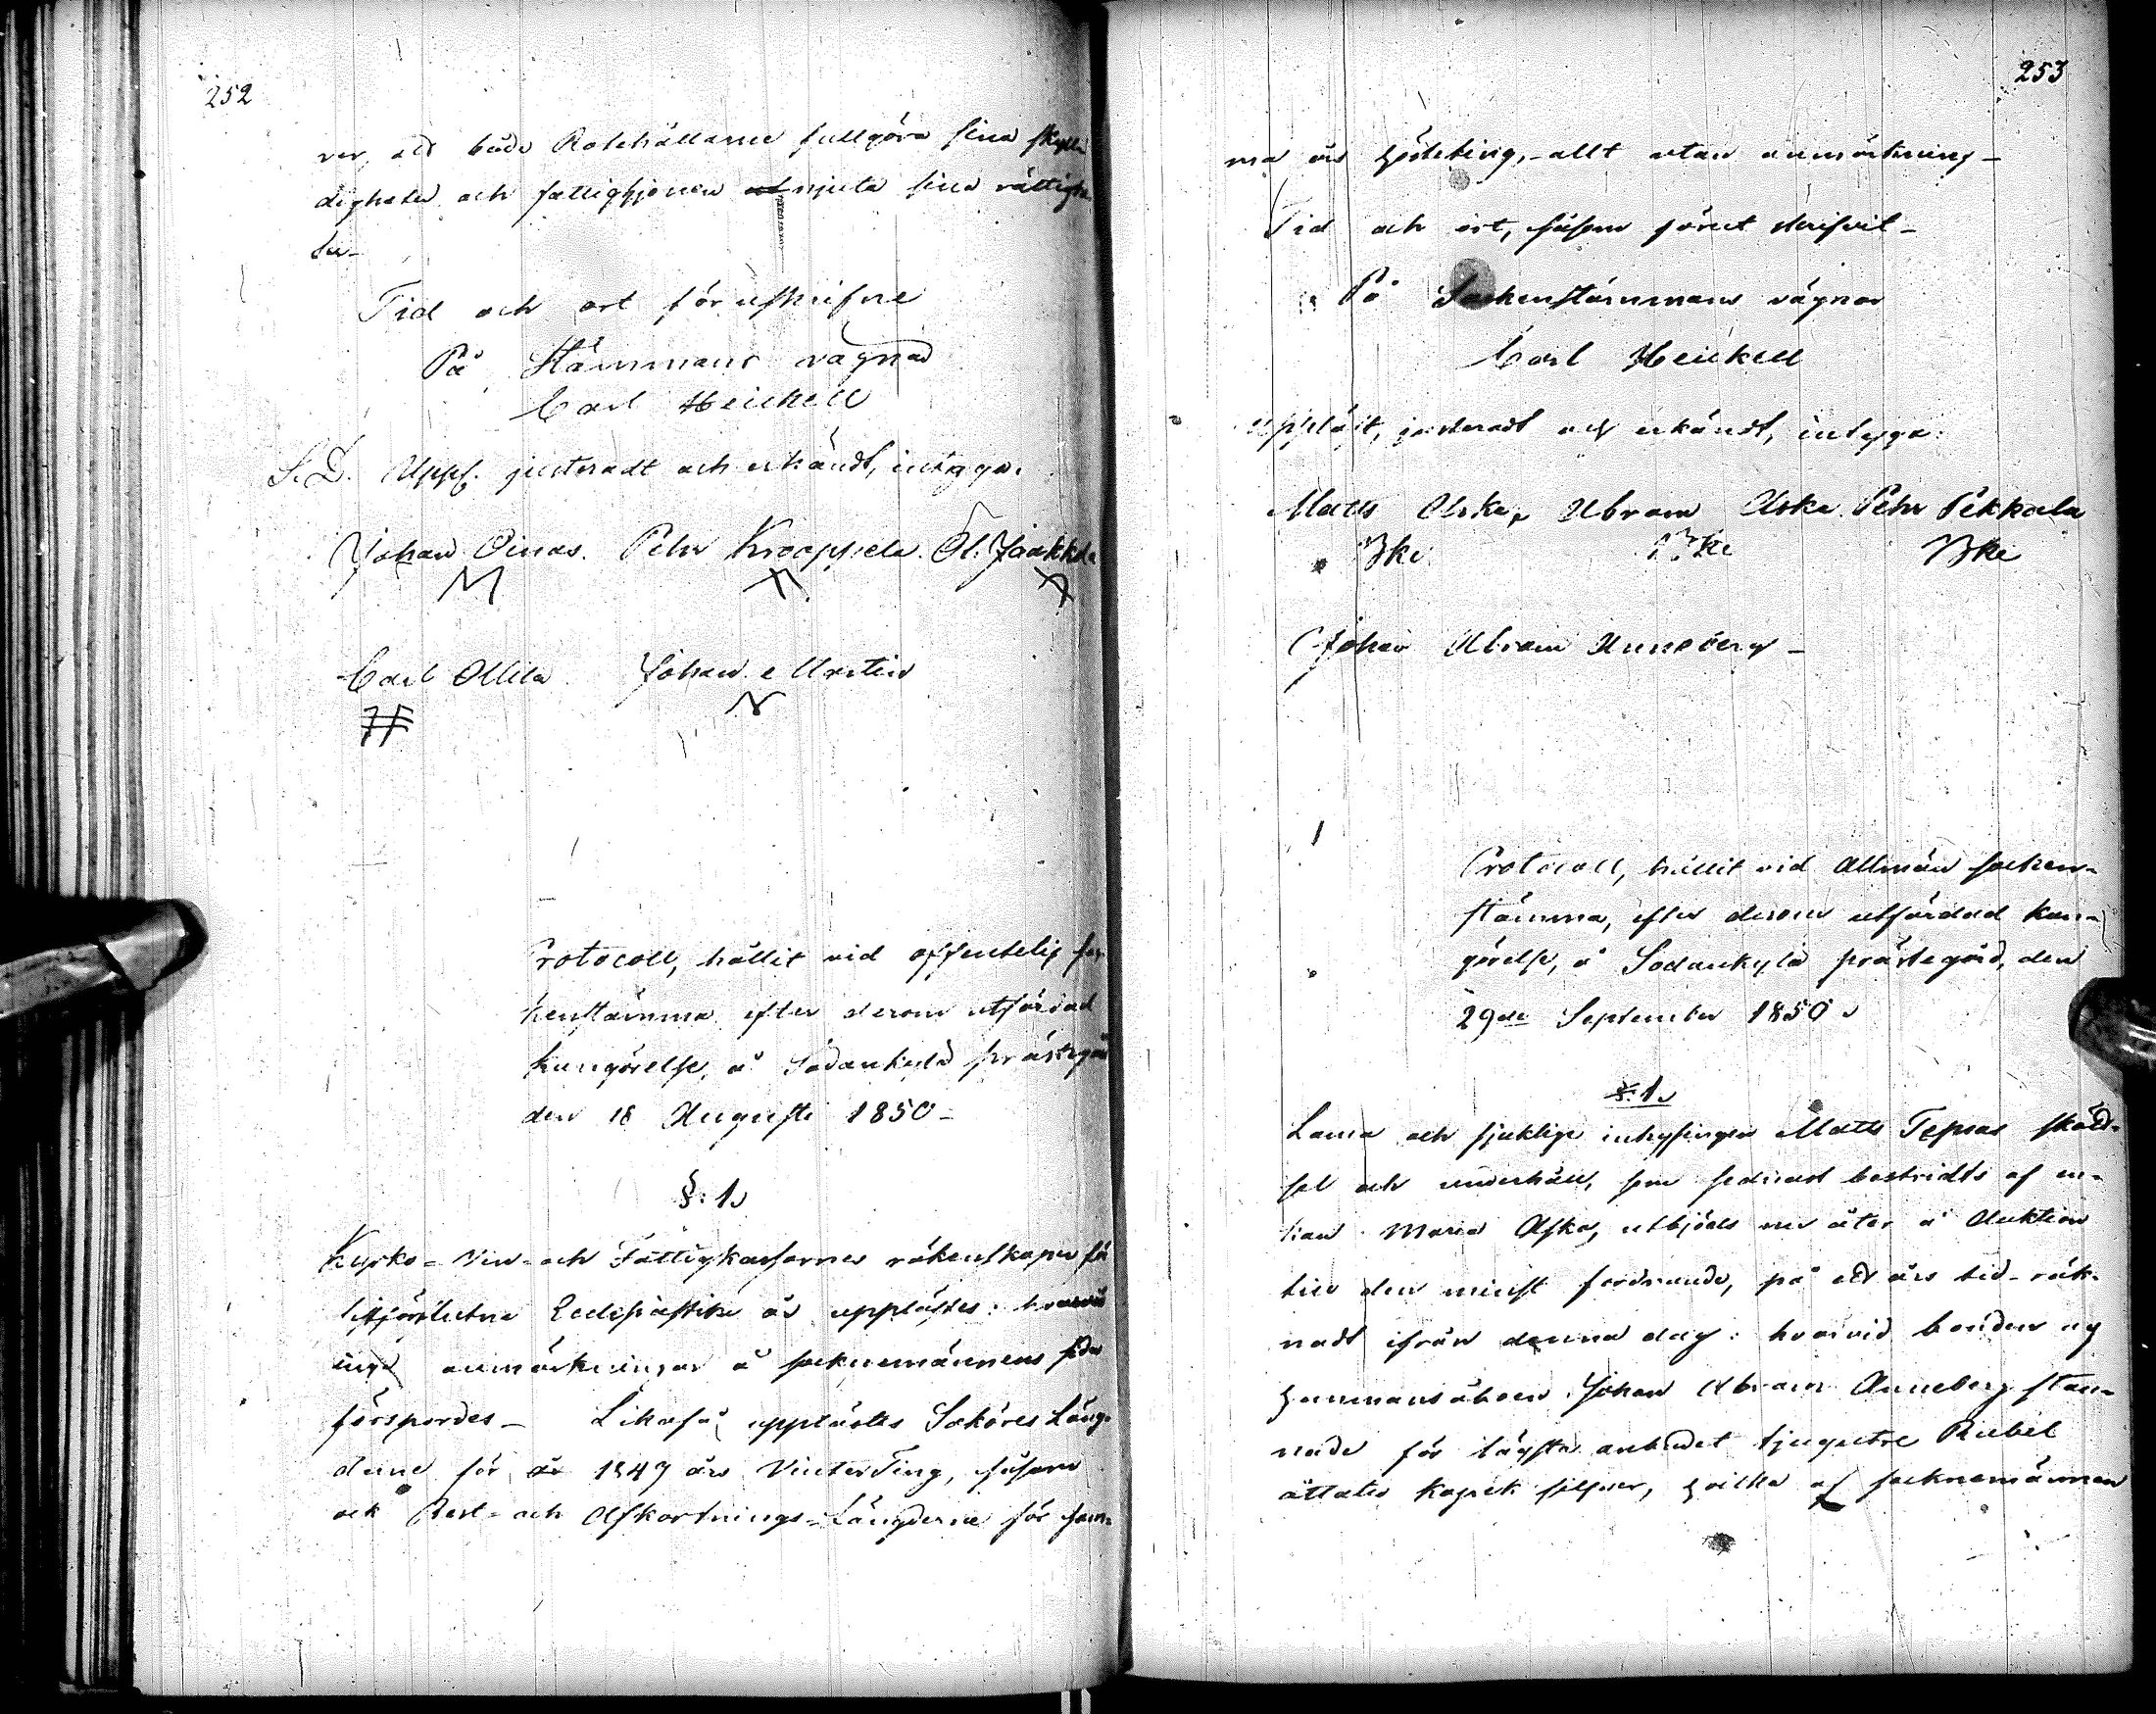 252
ver, att både Rotehållarne fullgöra sina skyl-
digheter och fattighjonen njuta sina rättighe-
ter_
Tid och ort förutskrifne
På Stämmans vägnar
Carl Heickell
S. D. Uppl. justeradt och erkändt, intyga:
Johan Oinas. Pehr Kroappela. Ol. Jaakkola
Carl Ollila Johan Martin
Protocoll, hållit vid offentelig soc-
kenstämma efter derom utfärdad
kungörelse, å Sodankylä prästegård
den 18 Augusti 1850_
§. 1.
Kyrko- Vin- och Fattigkassornes räkenskaper för
sistförflutne Ecclesiastike år upplästes: hvarvid
inga anmärkningar å socknemännens sida
förspordes_ Likaså upplästes Saköres Läng-
derne för år 1849 års VinterTing, såsom
ock Rest- och Afkortnings-Längderne för sam-
253
ma års Hösteting,_allt utan anmärkning_
Tid och ort, såsom förut skrifvit_
På Sockenstämmans vägnar
Carl Heickell
Uppläst, justeradt och erkändt, intyga:
Matts Aska, Abram Aska Pehr Pekkala
Bke Bke Bke
Johan Abram Anneberg_
Protocoll, hållit vid Allmän socken-
stämma, efter derom utfärdad kun-
görelse, å Sodankylä prästegård, den
29de September 1850.
§. 1.
Lama och sjuklige inhysingen Matts Tepsas sköt-
sel och underhåll, som sednast bestridts af en-
kan Maria Aska, utbjöds nu åter å Auktion
till den minst fordrande, på ett års tid_räk-
nadt ifrån denna dag: hvarvid bonden og
Hemmansåboen Johan Abram Anneberg stan-
nade för lägsta anbudet tjugutre Rubel
åttatio kopek silfver, hvilka af socknemännen